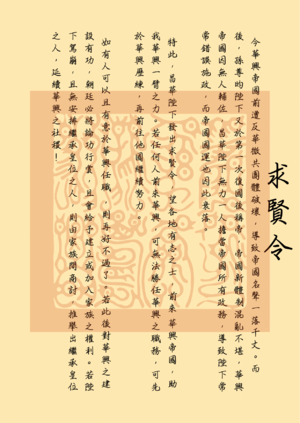 求賢令
今華興帝國前遭反華徽共團體破壞，導致帝國名聲一落千丈。而
後，孫尊昀陛下又於第一次復國後稱帝，帝國新體制混亂不堪，華興
帝國因無人輔佐，昌華陛下無力一人擔當帝國所有政務，導致陛下常
常錯誤施政，而帝國國運也因此衰落。
特此，昌華陛下發出求賢令，望各地有志之士，前來華興帝國，助
我華興一臂之力。若任何人前來華興，可無法勝任華興之職務，可先
於華興歷練，再前往他國繼續努力。
如有人可以且有意於華興任職，則再好不過了。若此後對華興之建
設有功，朝廷必將論功行賞，且會給予建立或加入家族之權利。若陛
下駕崩，且無安排繼承皇位之人，則由家族間商討，推舉出繼承皇位
之人，延續華興之社稷！